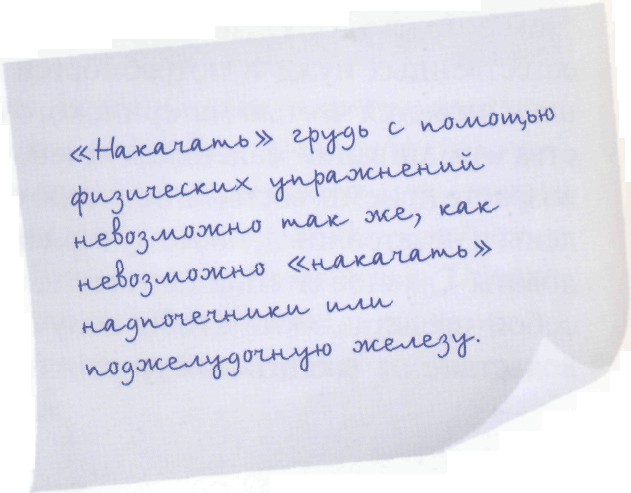 «Накачать» грудь с помощью
физических упражнений
невозможно так же, как
невозможно «накачать»
надпочечники или
поджелудочную железу.